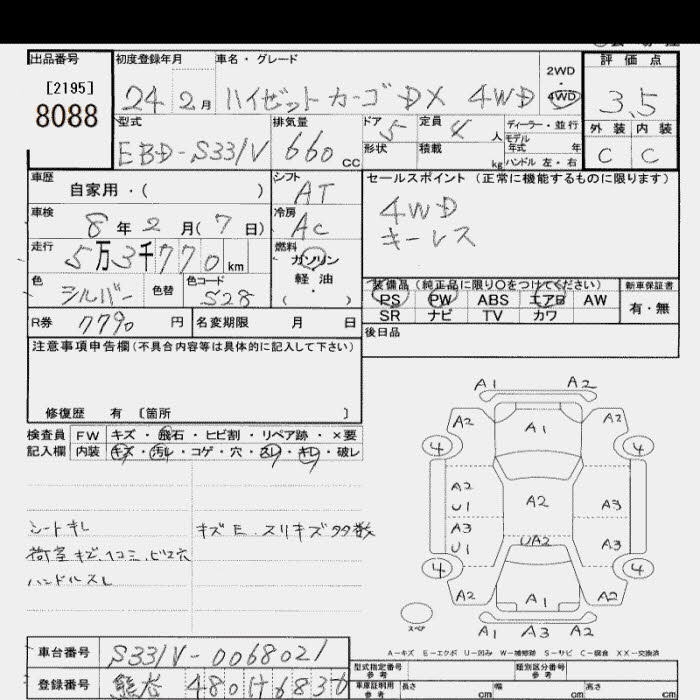 出品番号 初度登録年月 車名・グレード
[2195]
8088
24 2月 ハイゼットカーゴ DX 4WD
2WD
4WD
評価点
3.5
外装 内装
C C
型式
EBD-S331V
排気量
660 cc
ドア 5 定員 4 人
形状 積載 kg
ディーラー・並行
モデル
年式 年
ハンドル 左・右
車歴
自家用・( )
シフト
AT
車検
8年2月(7日)
冷房
AC
走行
5万3千770km
燃料
ガソリン
軽油
( ・ )
色
シルバー
色替
色コード
S28
R券 7790円
名変期限 月 日
セールスポイント (正常に機能するものに限ります)
4WD
キーレス
装備品(純正品に限り○をつけてください)
PS PW ABS エアB AW
SR ナビ TV カワ
新車保証書
有・無
後日品
注意事項申告欄(不具合内容等は具体的に記入して下さい)
修復歴 有 〔箇所 〕
検査員 FW キズ・飛石・ヒビ割・リペア跡・×要
記入欄 内装 キズ・汚レ・コゲ・穴・スレ・キレ・破レ
シートキレ
荷室キズ、ヘコミ、ビス穴
ハンドルスレ
キズE.スリキズ多数
A1 A2
A2 A1 A2
4 4
A2
U1
A2
A3
A3
U1
UA2
A3
4 4
A2 A1 A2
スペア
A1 A3 A2
A-キズ E-エクボ U-凹み W-補修跡 S-サビ C-腐食 XX-交換済
車台番号 S331V-0068021
登録番号 熊谷 480け6836
型式指定番号
参考
類別区分番号
参考
車庫証明用
参考
長さ cm 幅 cm 高さ cm